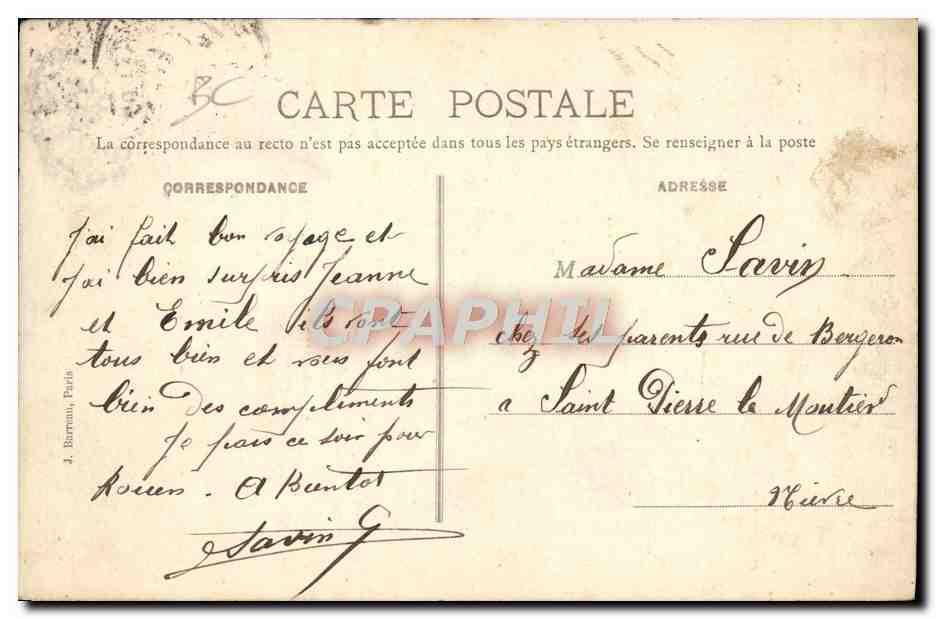 BC
CARTE POSTALE
La correspondance au recto n'est pas acceptée dans tous les pays étrangers. Se renseigner à la poste
CORRESPONDANCE
J'ai fait bon voyage et
J'ai bien surpris Jeanne
et Emile ils vont
tous bien et vous font
bien des compliments
Je pars ce soir pour
Rouen. A Bientot
Savin G
ADRESSE
Madame Savin
chez ses parents rue de Bergeron
a Saint Pierre le Moutier
Nievre
J. Barreau, Paris
CPAPHIL